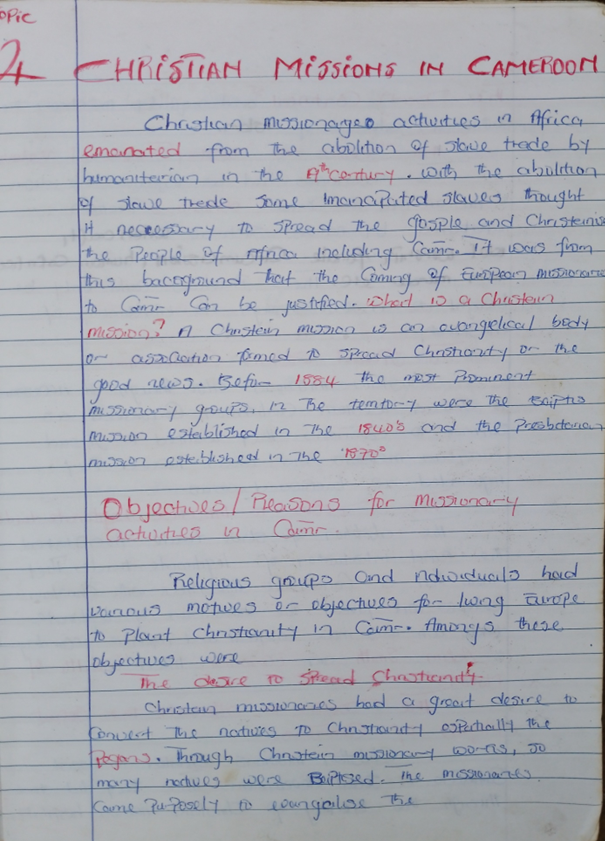 opic
2 CHRISTIAN MISSIONS IN CAMEROON
Christian missionaged activities in Africa
emanated from the abolition of slave trade by
humaniterian in the century. with the abolition
of slave trade some imancipated slaves thought
it necessary to spread the gosple and Christenise
the People of Africa including Camr. it was from
this background that the Coming of European missionaries
to Camr Can be justified. what is a Christein
mission? A Christein mission is an evangelical body
or association formed to spread Christianity or the
good news. Before 1884 the most Prominent
missionary groups in the territory were the Baptis
mission established in the 1840's and the Presbterian
mission established in the 1870s
Objectives/Reasons for missionary
activities in Camr.
Religious groups and ndividuals had
various motives or objectives for living Europe
to Plant Christianity in Camr. Amongs these
objectives were
The desire to Spread Christianity
Christein missionaries had a great desire to
Convert the natives to Christianity espertially the
Pagans. Through Christein missionary works, so
many natives were Baptised. The missionaries
Came Purposely to evangelise the